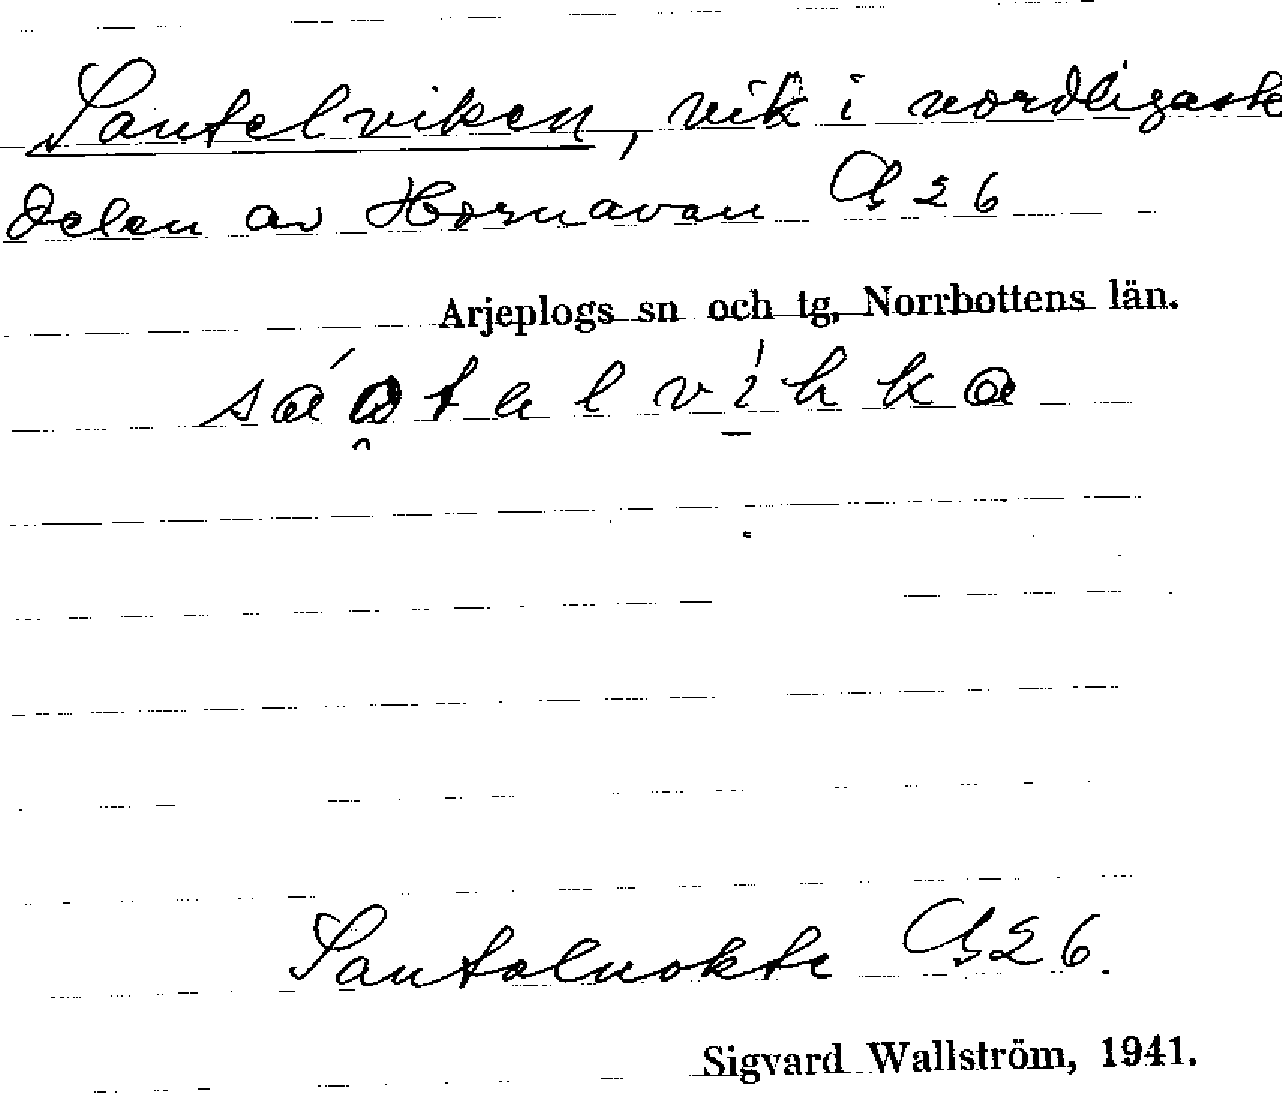 Sautelviken, vik i nordligast
delen av Hornavan G 26
Arjeplogs sn och tg, Norrbottens län.
Sautaluokte G 26.
Sigvard Wallström, 1941.